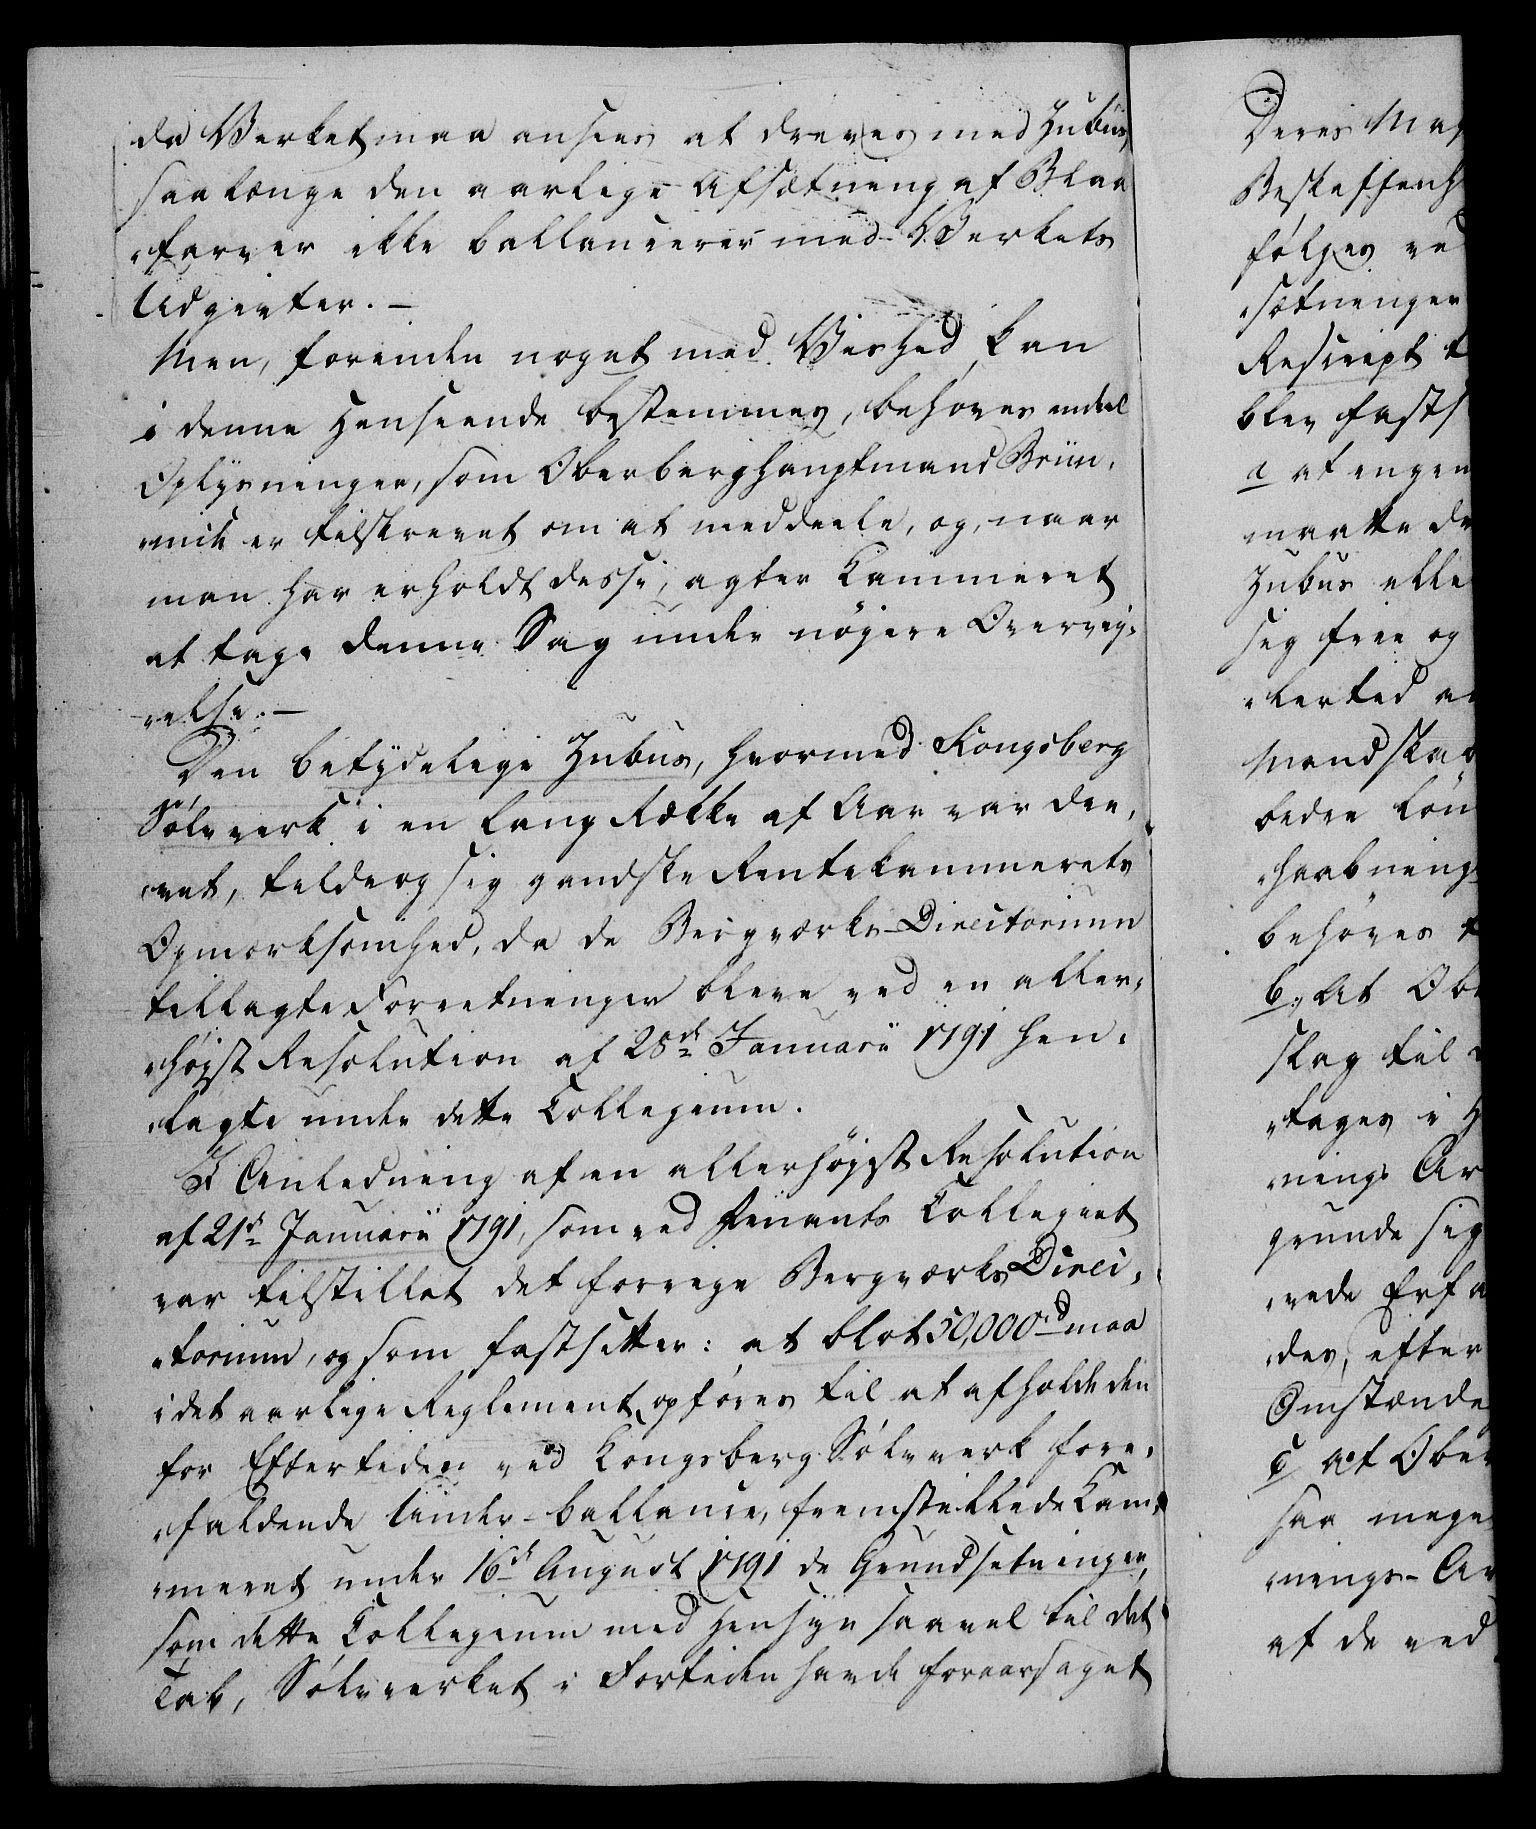 da Verket maa ansees at drives med Zubus,
saa længe den aarlige Afsætning af Blaa
„farver ikke ballancerer med Verkets
Udgivter. —
Men, forinden noget med Vished kan
i denne Henseende bestemmes, behøves endeel
Oplysninger, som Oberberghauptmand Brün„
„nich er tilskrevet om at meddeele, og, naar
man har erholdt disse, agter Kammeret
at tage denne Sag under nøyere Overvey„
„else. —
Den betydelige Zubus, hvormed Kongsberg
Sølvverk i en lang Række af Aar var dre„
„vet, tildrog sig gandske Rentekammerets
Opmærksomhed, da de Bergværks-Directorium
tillagte Forretninger bleve ved en aller„
„høyst Resolution af 28de Januarii 1791 hen„
„lagte under dette Collegium.
I Anledning af en allerhøyst Resolution
af 21de Januarii 1791, som ved Finants Collegiet
var tilstillet det forrige Bergværks Direc„
„torium, og som fastsetter: at blot 50,000rd maa
i det aarlige Reglement opføres til at afholde den
for Eftertiden ved Kongsberg Sølvverk fore„
„faldende Under-ballance, fremstillede Kam„
„meret under 16de August 1791 de Grundsetninger,
som dette Collegium med Hensyn saavel til det
Tab, Sølvverket i Fortiden havde foraarsaget
Deres Maj
Beskaffenh
følges ved
„sætninger
Rescript
blev fasts
a at ingen
maatte dr
Zubus elle
sig frie og
„lertid
Mandskab
bedre Løn
„haabning
behøves
b, At Obe
slag til
„tages i H
„nings Ar
grunde sig
„vede Erfa
„des, efter
Omstænde
c, at Ober
saa mege
„nings-Ar
af de ved